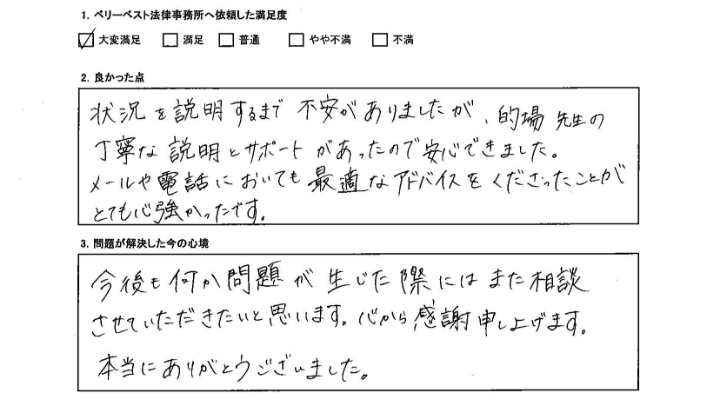 1. ベリーベスト法律事務所へ依頼した満足度
☑ 大変満足 □ 満足 □ 普通 □ やや不満 □ 不満
2. 良かった点
状況を説明するまで不安がありましたが、的場先生の
丁寧な説明とサポートがあったので安心できました。
メールや電話においても最適なアドバイスをくださったことが
とても心強かったです。
3. 問題が解決した今の心境
今後も何か問題が生じた際にはまた相談
させていただきたいと思います。心から感謝申し上げます。
本当にありがとうございました。